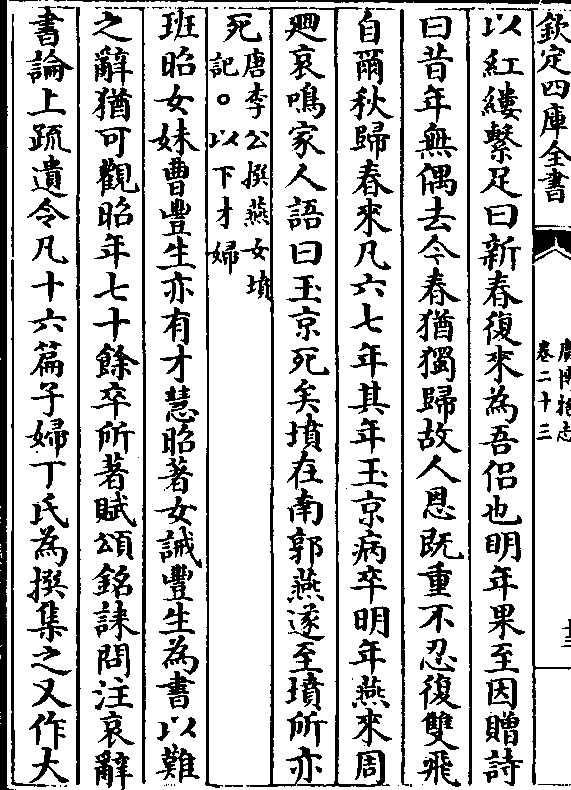 欽定四庫全書
廣博物志
卷二十三
十三
以紅縷繫足曰新春復來為吾侣也明年果至因贈詩
曰昔年無偶去今春猶獨歸故人恩既重不忍復雙飛
自爾秋歸春來凡六七年其年玉京病卒明年燕來周
𢌞哀鳴家人語曰玉京死矣墳在南郭燕遂至墳所亦
死唐李公撰燕女墳
記○以下才婦
班昭女妹曹豐生亦有才慧昭著女誡豐生為書以難
之辭猶可觀昭年七十餘卒所著賦頌銘誄問注哀辭
書論上疏遺令凡十六篇子婦丁氏為撰集之又作大